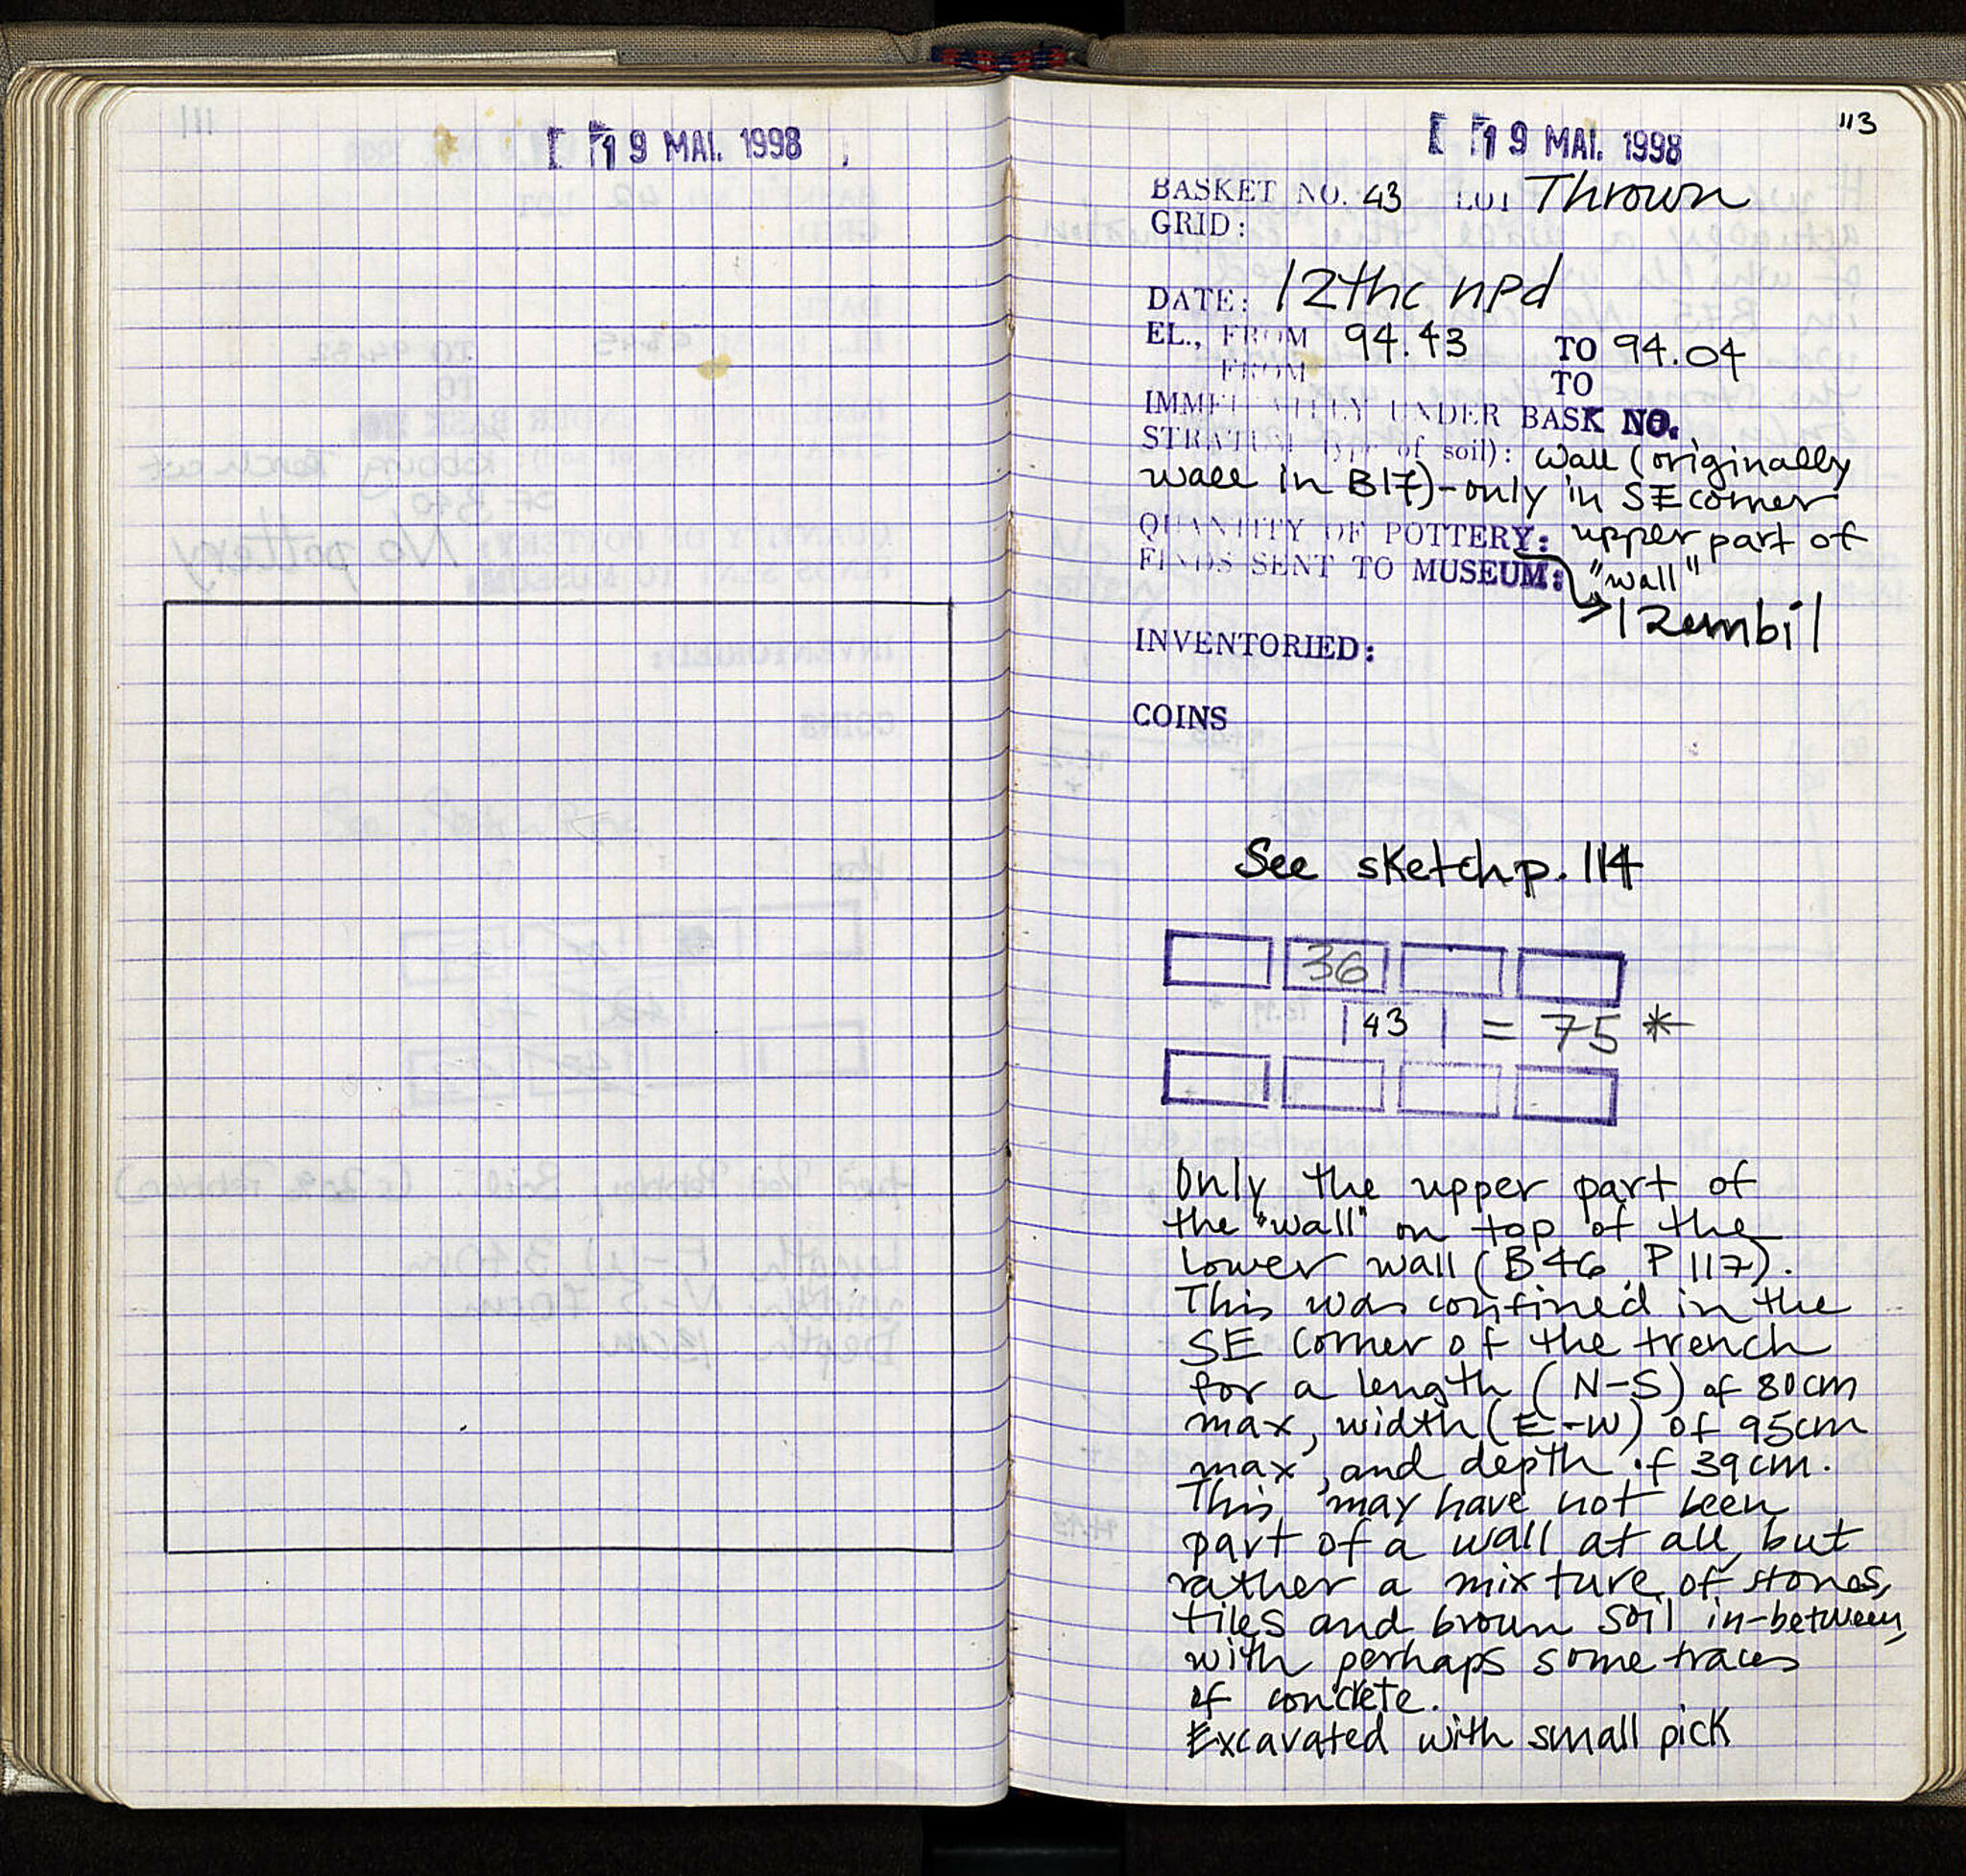 19 MAI. 1998
19 MAI. 1998
113
BASKET NO. 43 LOT Thrown
GRID:
DATE: 12thc npd
EL., FROM 94.43 TO 94.04
FROM TO
IMMEDIATELY UNDER BASK NO.
STRATUM (type of soil): wall (originally
wall in B17) - only in SE corner
QUANTITY OF POTTERY: upper part of
FINDS SENT TO MUSEUM: "wall"
1 zembil
INVENTORIED:
COINS
See sketch p. 114
36
43 = 75 *
Only the upper part of
the "wall" on top of the
lower wall (B46, P117).
This was confined in the
SE corner of the trench
for a length (N-S) of 80cm
max, width (E-W) of 95cm
max, and depth of 39cm.
This may have not been
part of a wall at all, but
rather a mixture of stones,
tiles and brown soil in-between,
with perhaps some traces
of concrete.
Excavated with small pick